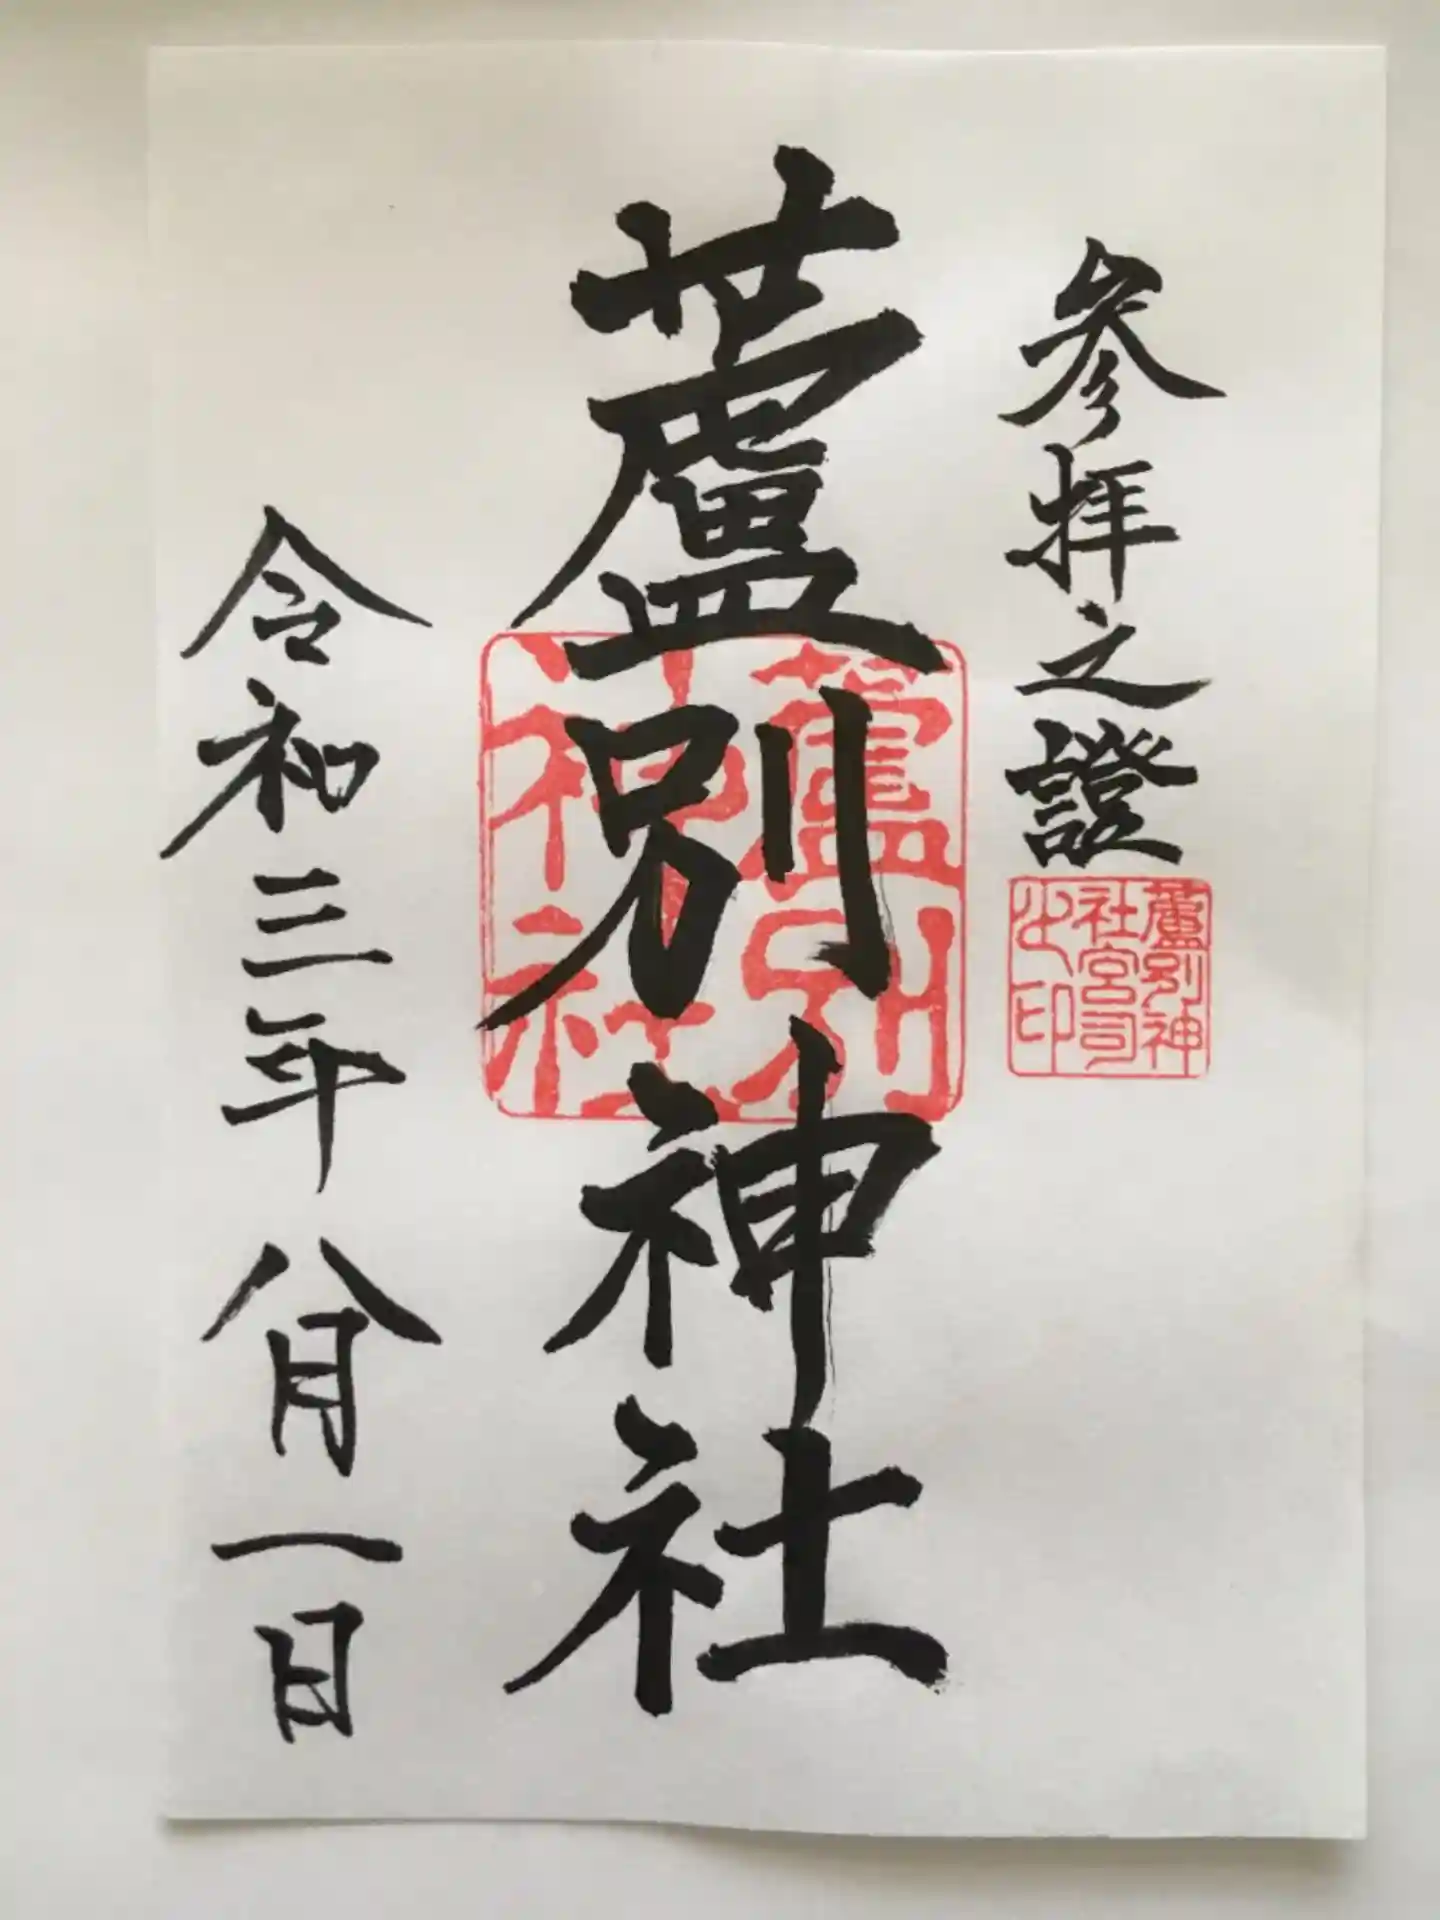 參拝之證
蘆別神
社宮司
之印
蘆別神社
蘆別
神社
令和三年八月一日